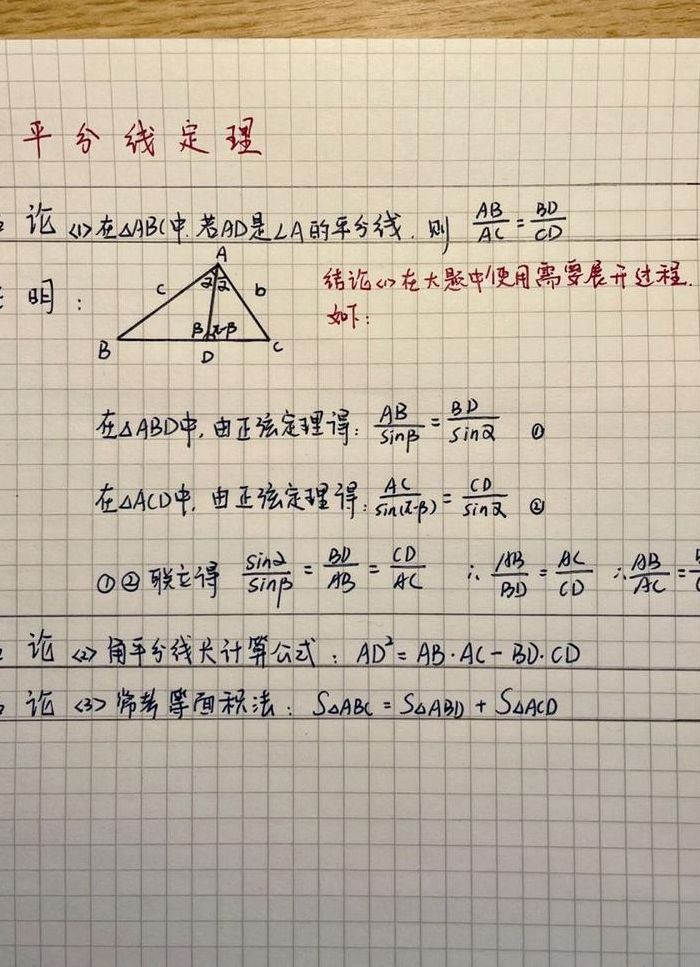 平分线定理
论<1>在△ABC中.若AD是∠A的平分线.则 AB/AC = BD/CD
明:
A
c α α b
结论<1>在大题中使用需要展开过程.
如下:
β π-β
B D C
在△ABD中,由正弦定理得: AB/sinβ = BD/sinα ①
在△ACD中,由正弦定理得: AC/sin(π-β) = CD/sinα ②
①②联立得 sinα/sinβ = BD/AB = CD/AC ∴ AB/BD = AC/CD ∴ AB/AC =
论<2>角平分线长计算公式: AD² = AB·AC - BD·CD
论<3>常考等面积法: S△ABC = S△ABD + S△ACD